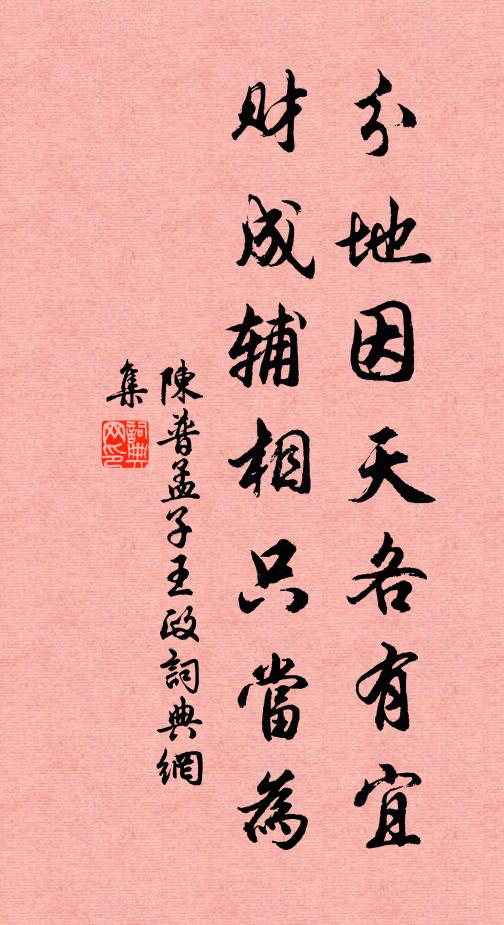 分地因天各有宜
財成辅相只當為
陳普孟子王政詞典網
集
詞典网印